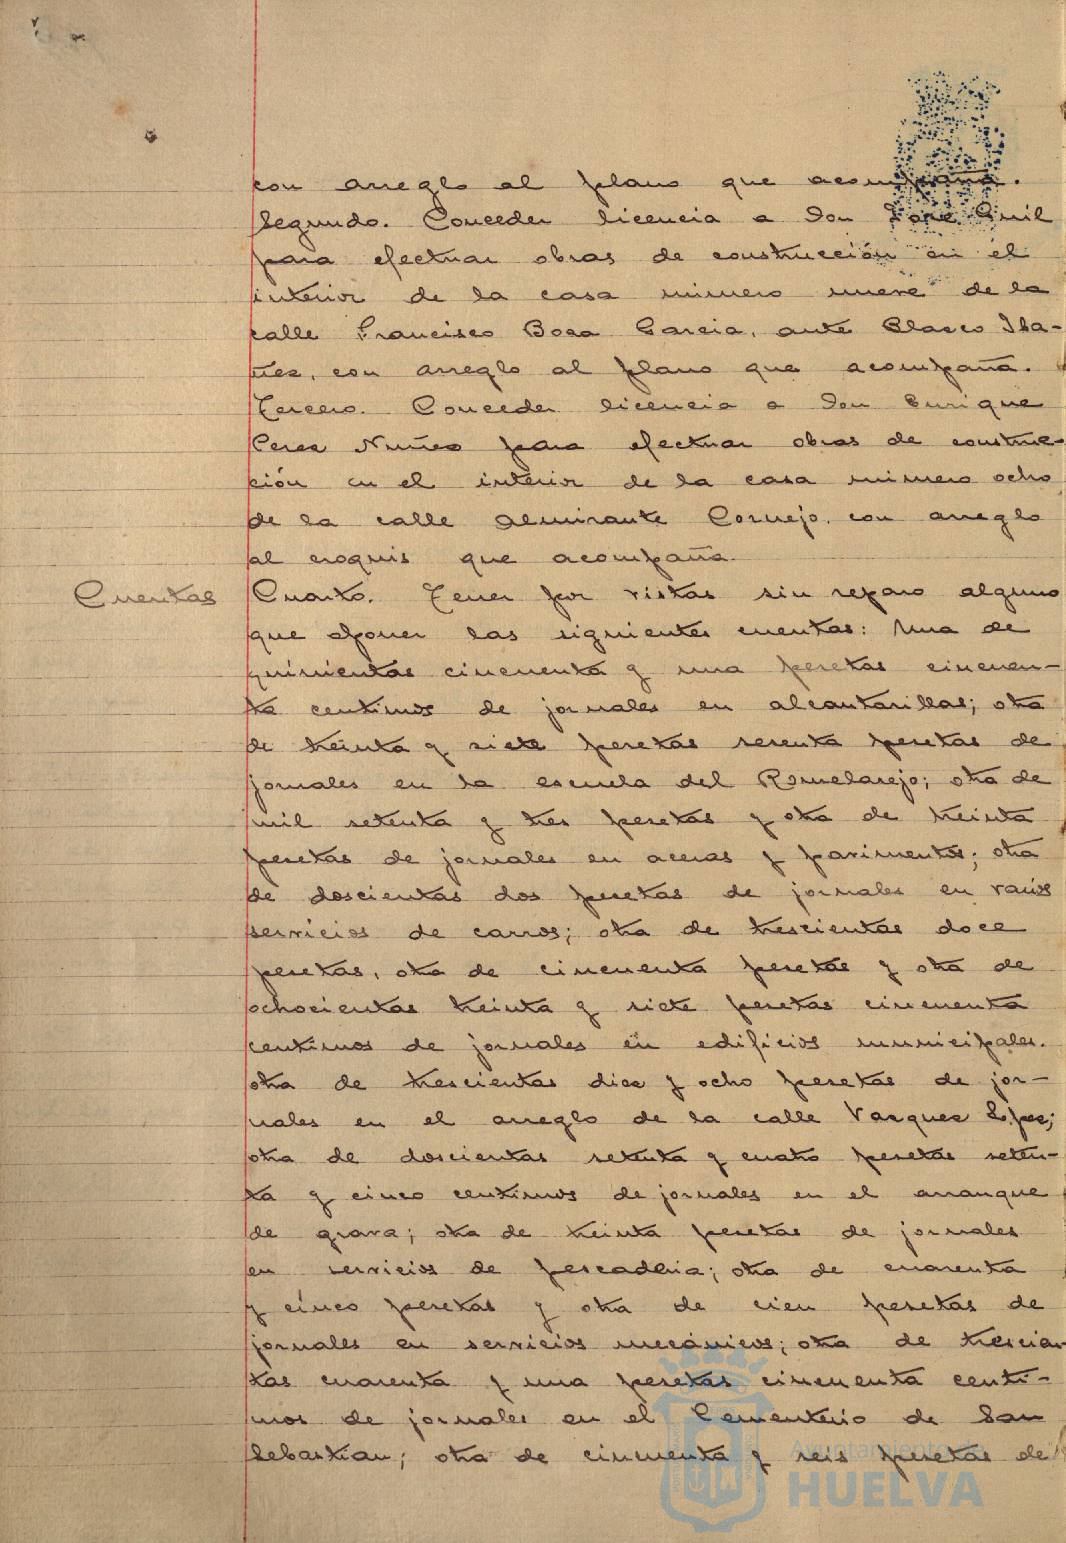 con arreglo al plano que acompaña.
Segundo. Conceder licencia a Don José Gril
para efectuar obras de construcción en el
interior de la casa número nueve de la
calle Francisco Boza Garcia, ante Blasco Iba-
ñez, con arreglo al plano que acompaña.
Tercero. Conceder licencia a Don Enrique
Perez Nuñez para efectuar obras de construc-
ción en el interior de la casa número ocho
de la calle Almirante Cornejo, con arreglo
al croquis que acompaña.
Cuentas
Cuarto. Tener por vistas sin reparo alguno
que oponer las siguientes cuentas: Una de
quinientas cincuenta y una pesetas cincuen-
ta centimos de jornales en alcantarillas; otra
de treinta y siete pesetas sesenta pesetas de
jornales en la escuela del Romelarejo; otra de
mil setenta y tres pesetas y otra de treinta
pesetas de jornales en aceras y pavimentos; otra
de doscientas dos pesetas de jornales en varios
servicios de carros; otra de trescientas doce
pesetas, otra de cincuenta pesetas y otra de
ochocientas treinta y siete pesetas cincuenta
centimos de jornales en edificios municipales.
otra de trescientas diez y ocho pesetas de jor-
nales en el arreglo de la calle Vazquez Lopez;
otra de doscientas setenta y cuatro pesetas seten-
ta y cinco centimos de jornales en el arranque
de grava; otra de treinta pesetas de jornales
en servicios de pescaderia; otra de cuarenta
y cinco pesetas y otra de cien pesetas de
jornales en servicios mecánicos; otra de trescien-
tas cuarenta y una pesetas cincuenta centi-
mos de jornales en el Cementerio de San
Sebastian; otra de cincuenta y seis pesetas de
Ayuntamiento de
HUELVA